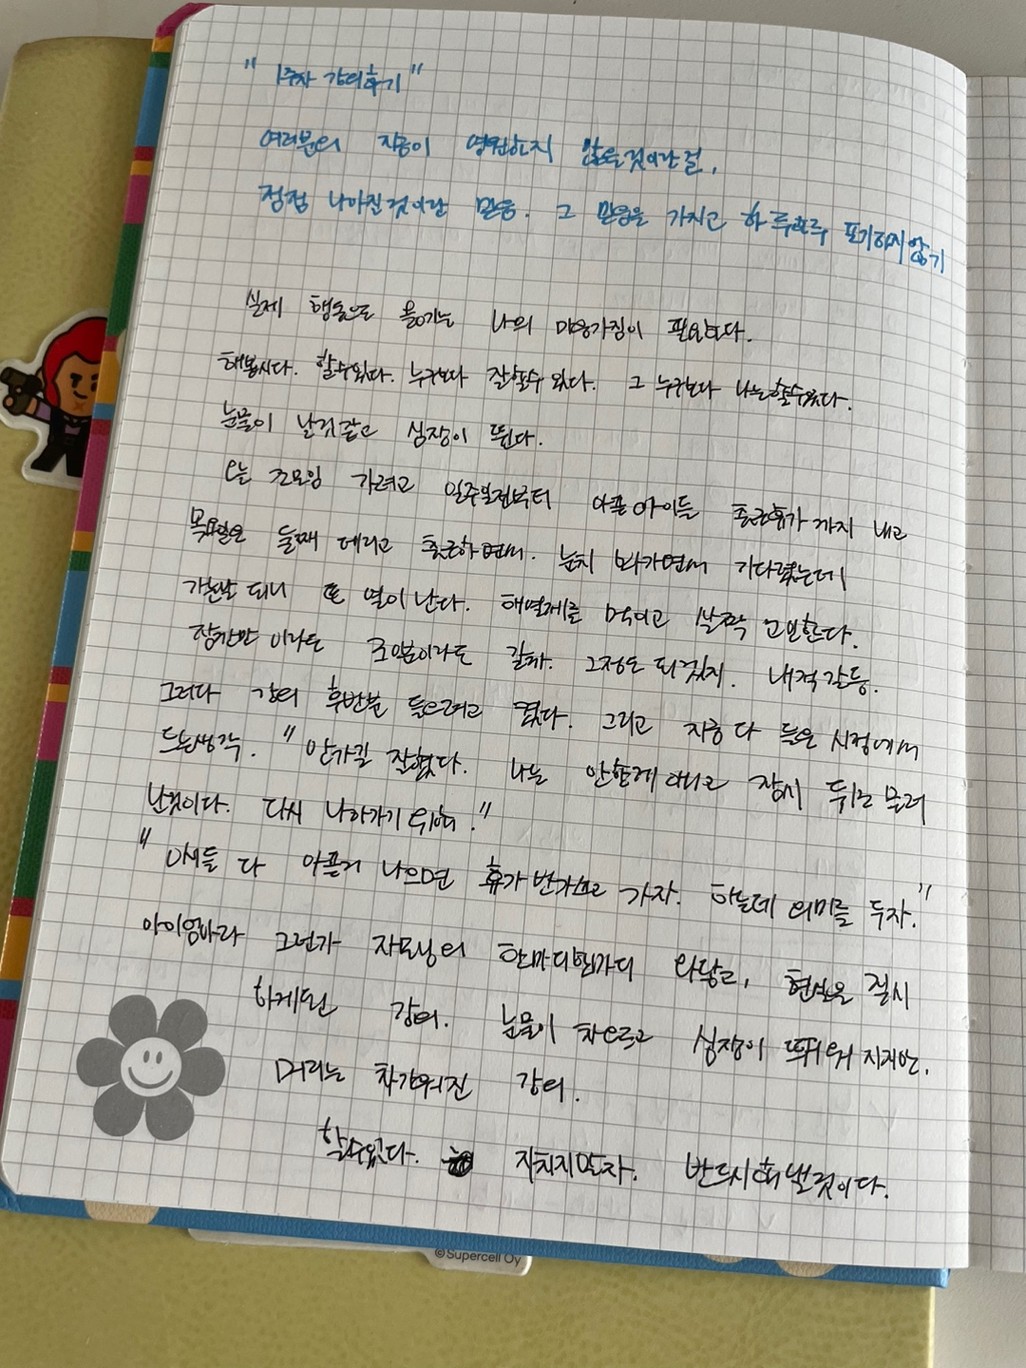 " 1주차 강의후기 "
여러분의 지금이 영원하지 않을것이란걸,
점점 나아질것이란 믿음. 그 믿음을 가지고 하루하루 포기하지않기
실제 행동으로 옮기는 나의 마음가짐이 필요하다.
해봅시다. 할수있다. 누구보다 잘할수있다. 그 누구보다 나는할수있다.
눈물이 날것같고 심장이 뛴다.
오늘 조모임 가려고 일주일전부터 아픈아이들 출근휴가까지 내고
목요일은 둘째 데리고 출근하면서. 눈치 봐가면서 기다렸는데
가는날 되니 또 열이난다. 해열제를 먹이고 살짝 고민한다.
잠깐만이라도 조모임이라도 갈까. 그정도 되겠지. 내적갈등.
그러다 강의 후반분 들으려고 켰다. 그리고 지금 다 들은 시점에서
드는생각. " 안가길 잘했다. 나는 안한게 아니고 잠시 뒤로 물러
난것이다. 다시 나아가기 위해. "
" 애들 다 아픈거 나으면 휴가 반가쓰고 가자. 하는데 의미를 두자. "
아이엄마라 그런가 자모님의 한마디한마디 와닿고, 현실을 직시
하게된 강의. 눈물이 차오르고 심장이 뜨거워지지만.
머리는 차가워진 강의.
할수있다. 지치지말자. 반드시해낼것이다.
©Supercell Oy